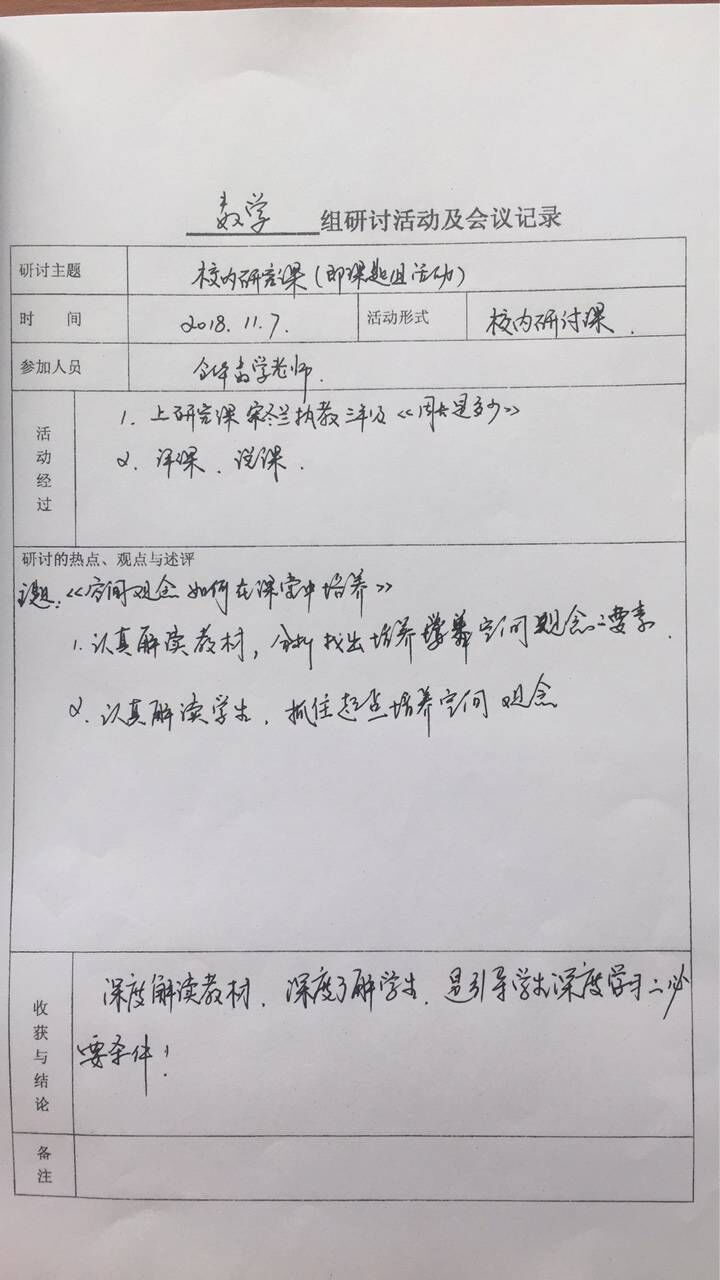 数学 组研讨活动及会议记录
研讨主题 校内研究课(即课题组活动)
时 间 2018.11.7. 活动形式 校内研讨课.
参加人员 全体数学老师.
活动经过
1. 上研究课 执教三年级《周长是多少》
2. 评课、说课.
研讨的热点、观点与述评
主题:《空间观念如何在课堂中培养》
1.认真解读教材,分析找出培养 空间观念之要素.
2.认真解读学生,抓住起点培养空间观念
收获与结论
深度解读教材、深度了解学生,是引导学生深度学习之必
要条件!
备注